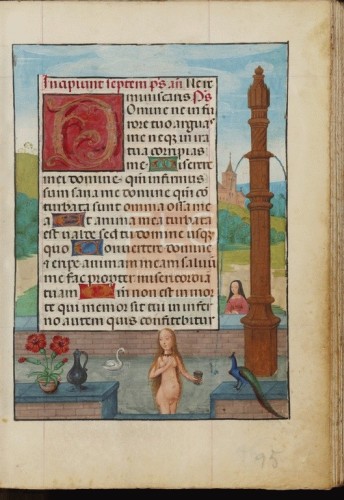 Incipiunt septem ps añ Ne re
miniscaris Ps
Domine ne in fu
rore tuo arguas
me neq; in ira
tua corripias
me Miserere
mei domine qui infirmus
sum sana me domine qm̃ co
turbata sunt omnia ossa me
a Et anima mea turbata
est valde sed tu domine usq;
quo Convertere domine
et eripe animam meam salvũ
me fac propter misericordiam
tuam Qm̃ non est in mor
te qui memor sit tui in infer
no autem quis confitebitur
95